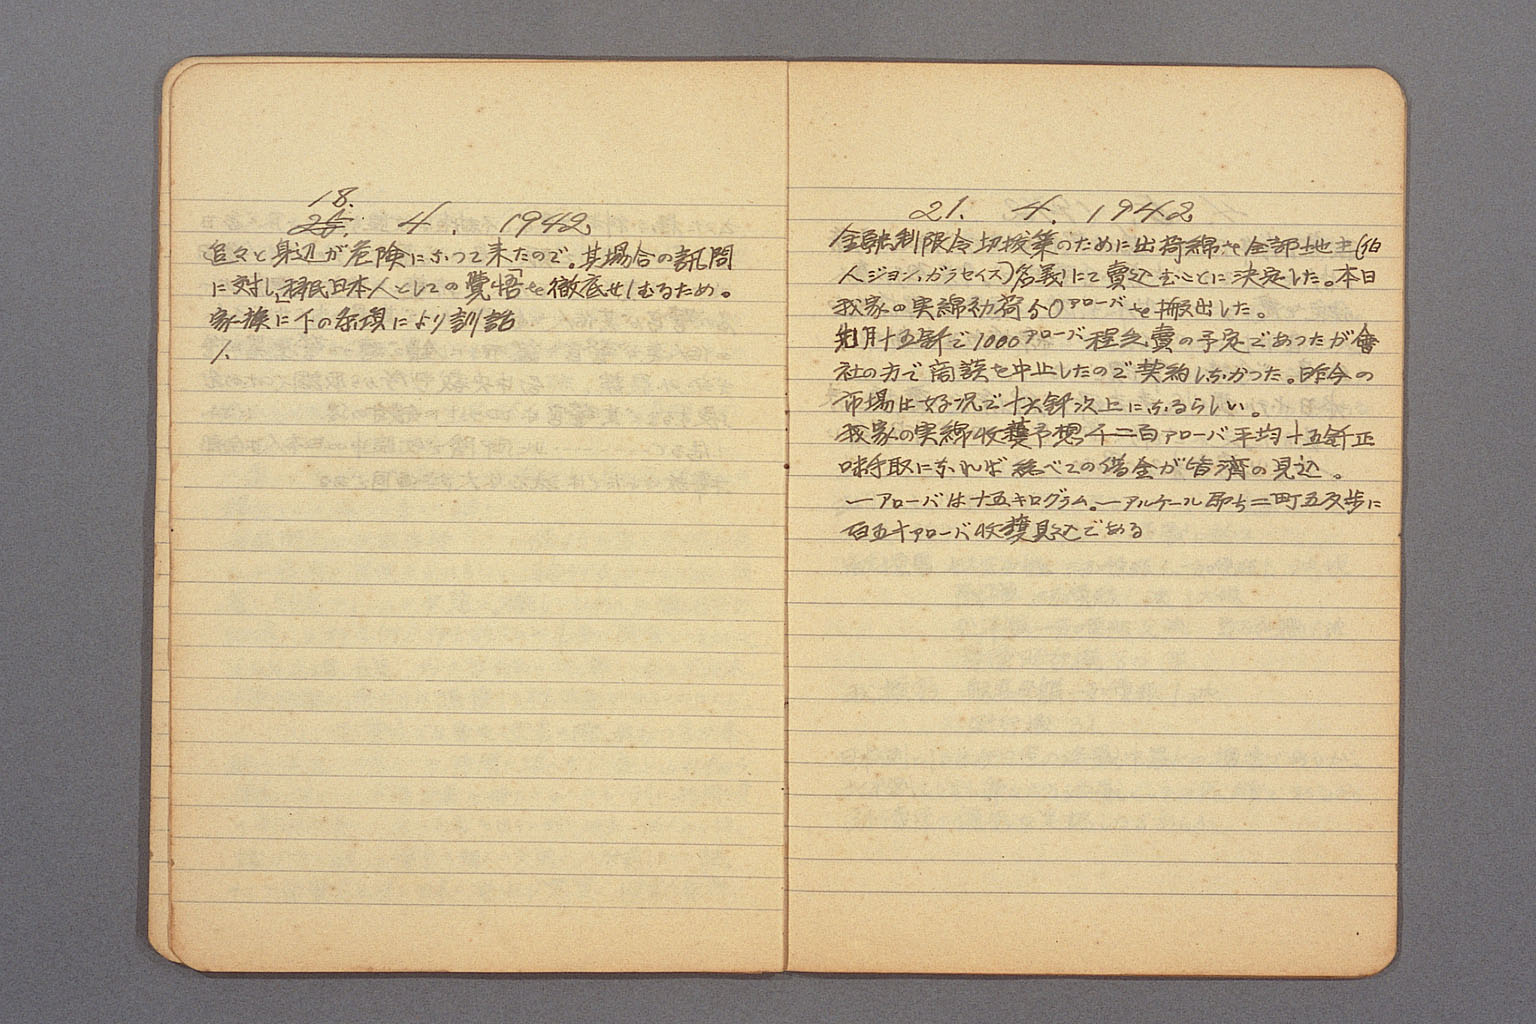 18.
4. 1942
追々と身辺が危険になつて来たので。其場合の訊問
に対し「移民日本人としての覺悟」を徹底せしむるため。
家族に下の条項により訓話
1.
21. 4. 1942
金融制限令切拔策のために出荷綿を全部地主(伯
人ジヨン、ガラセイス)名義にて賣込むことに決定した。本日
我家の実綿初荷50アローバを搬出した。
先月十五釺で1000アローバ程を賣の予定であつたが會
社の方で商談を中止したので契約しなかつた。昨今の
市場は好況で十六釺以上になるらしい。
我家の実綿收穫予想千二百アローバ平均十五釺正
味手取になれば総べての借金が皆濟の見込。
一アローバは十五キログラム。一アルケール即ち二町五反歩に
百五十アローバ收穫見込である